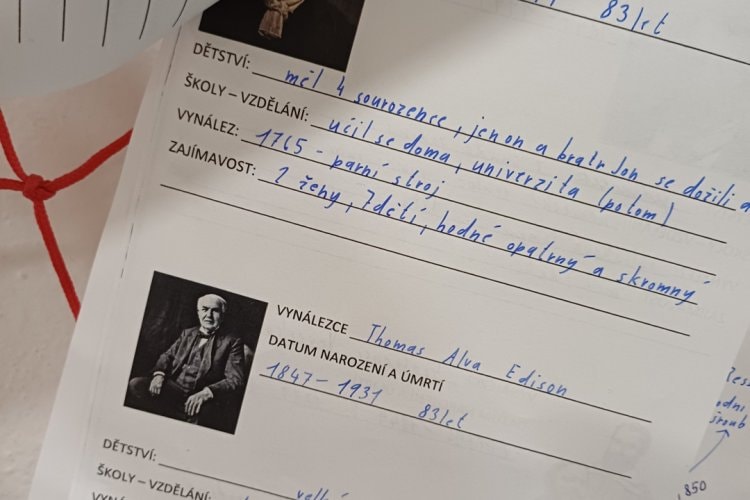 83 let
DĚTSTVÍ: měl 4 sourozence, jen on a bratr Jon se dožili
ŠKOLY – VZDĚLÁNÍ: učil se doma, univerzita (potom)
VYNÁLEZ: 1765 – parní stroj
ZAJÍMAVOST: 2 ženy, 7 dětí, hodně opatrný a skromný
VYNÁLEZCE Thomas Alva Edison
DATUM NAROZENÍ A ÚMRTÍ
1847 – 1931 83 let
DĚTSTVÍ:
ŠKOLY – VZDĚLÁNÍ:
850